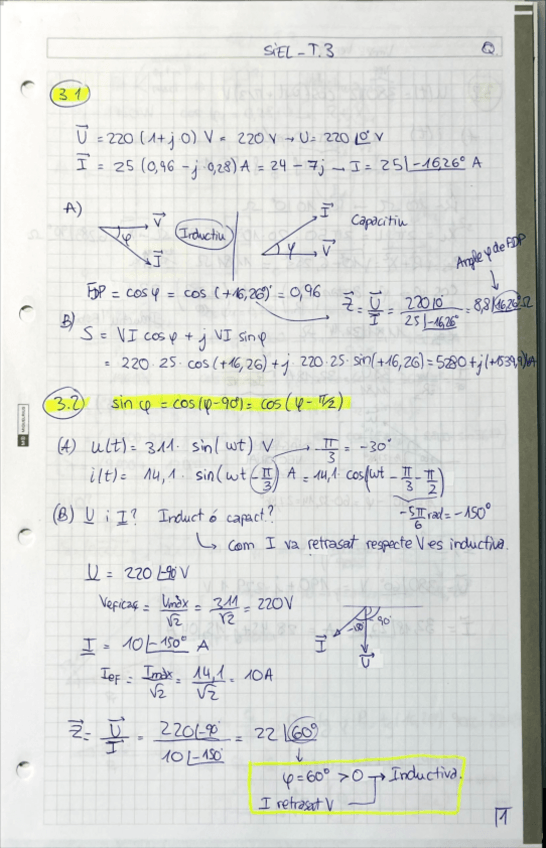 SIEL - T.3 Q.
3.1
U⃗ = 220 (1+j 0) V = 220 V → U = 220 ∠0° V
I⃗ = 25 (0,96 - j 0,28) A = 24 - 7j → I = 25 ∠-16,26° A
A) V⃗ φ I⃗ Inductiu I⃗ φ V⃗ Capacitiu
FDP = cos φ = cos (+16,26)° = 0,96
Angle φ de FDP
Z⃗ = U⃗/I = 220∠0°/25∠-16,26° = 8,8 ∠16,26° Ω
B) S = VI cos φ + j VI sin φ
= 220·25· cos(+16,26) + j· 220·25· sin(+16,26) = 5280 + j(+1539,9)
3.2 sin φ = cos(φ-90°) = cos(φ - π/2)
(A) u(t) = 311· sin(ωt) V π/3 = -30°
i(t) = 14,1· sin(ωt - π/3) A = 14,1· cos(ωt - π/3 - π/2)
-5π/6 rad = -150°
(B) U i I? Induct ó capact?
↳ com I va retrasat respecte V es inductiva.
U = 220 ∠-90° V
Veficaç = Umàx/√2 = 311/√2 = 220 V
I = 10 ∠-150° A
Ief = Imàx/√2 = 14,1/√2 = 10A
I⃗ -150° -90° U⃗
Z⃗ = U⃗/I = 220∠-90°/10∠-150° = 22 ∠60°
φ = 60° > 0 → Inductiva.
I retrasat V
1